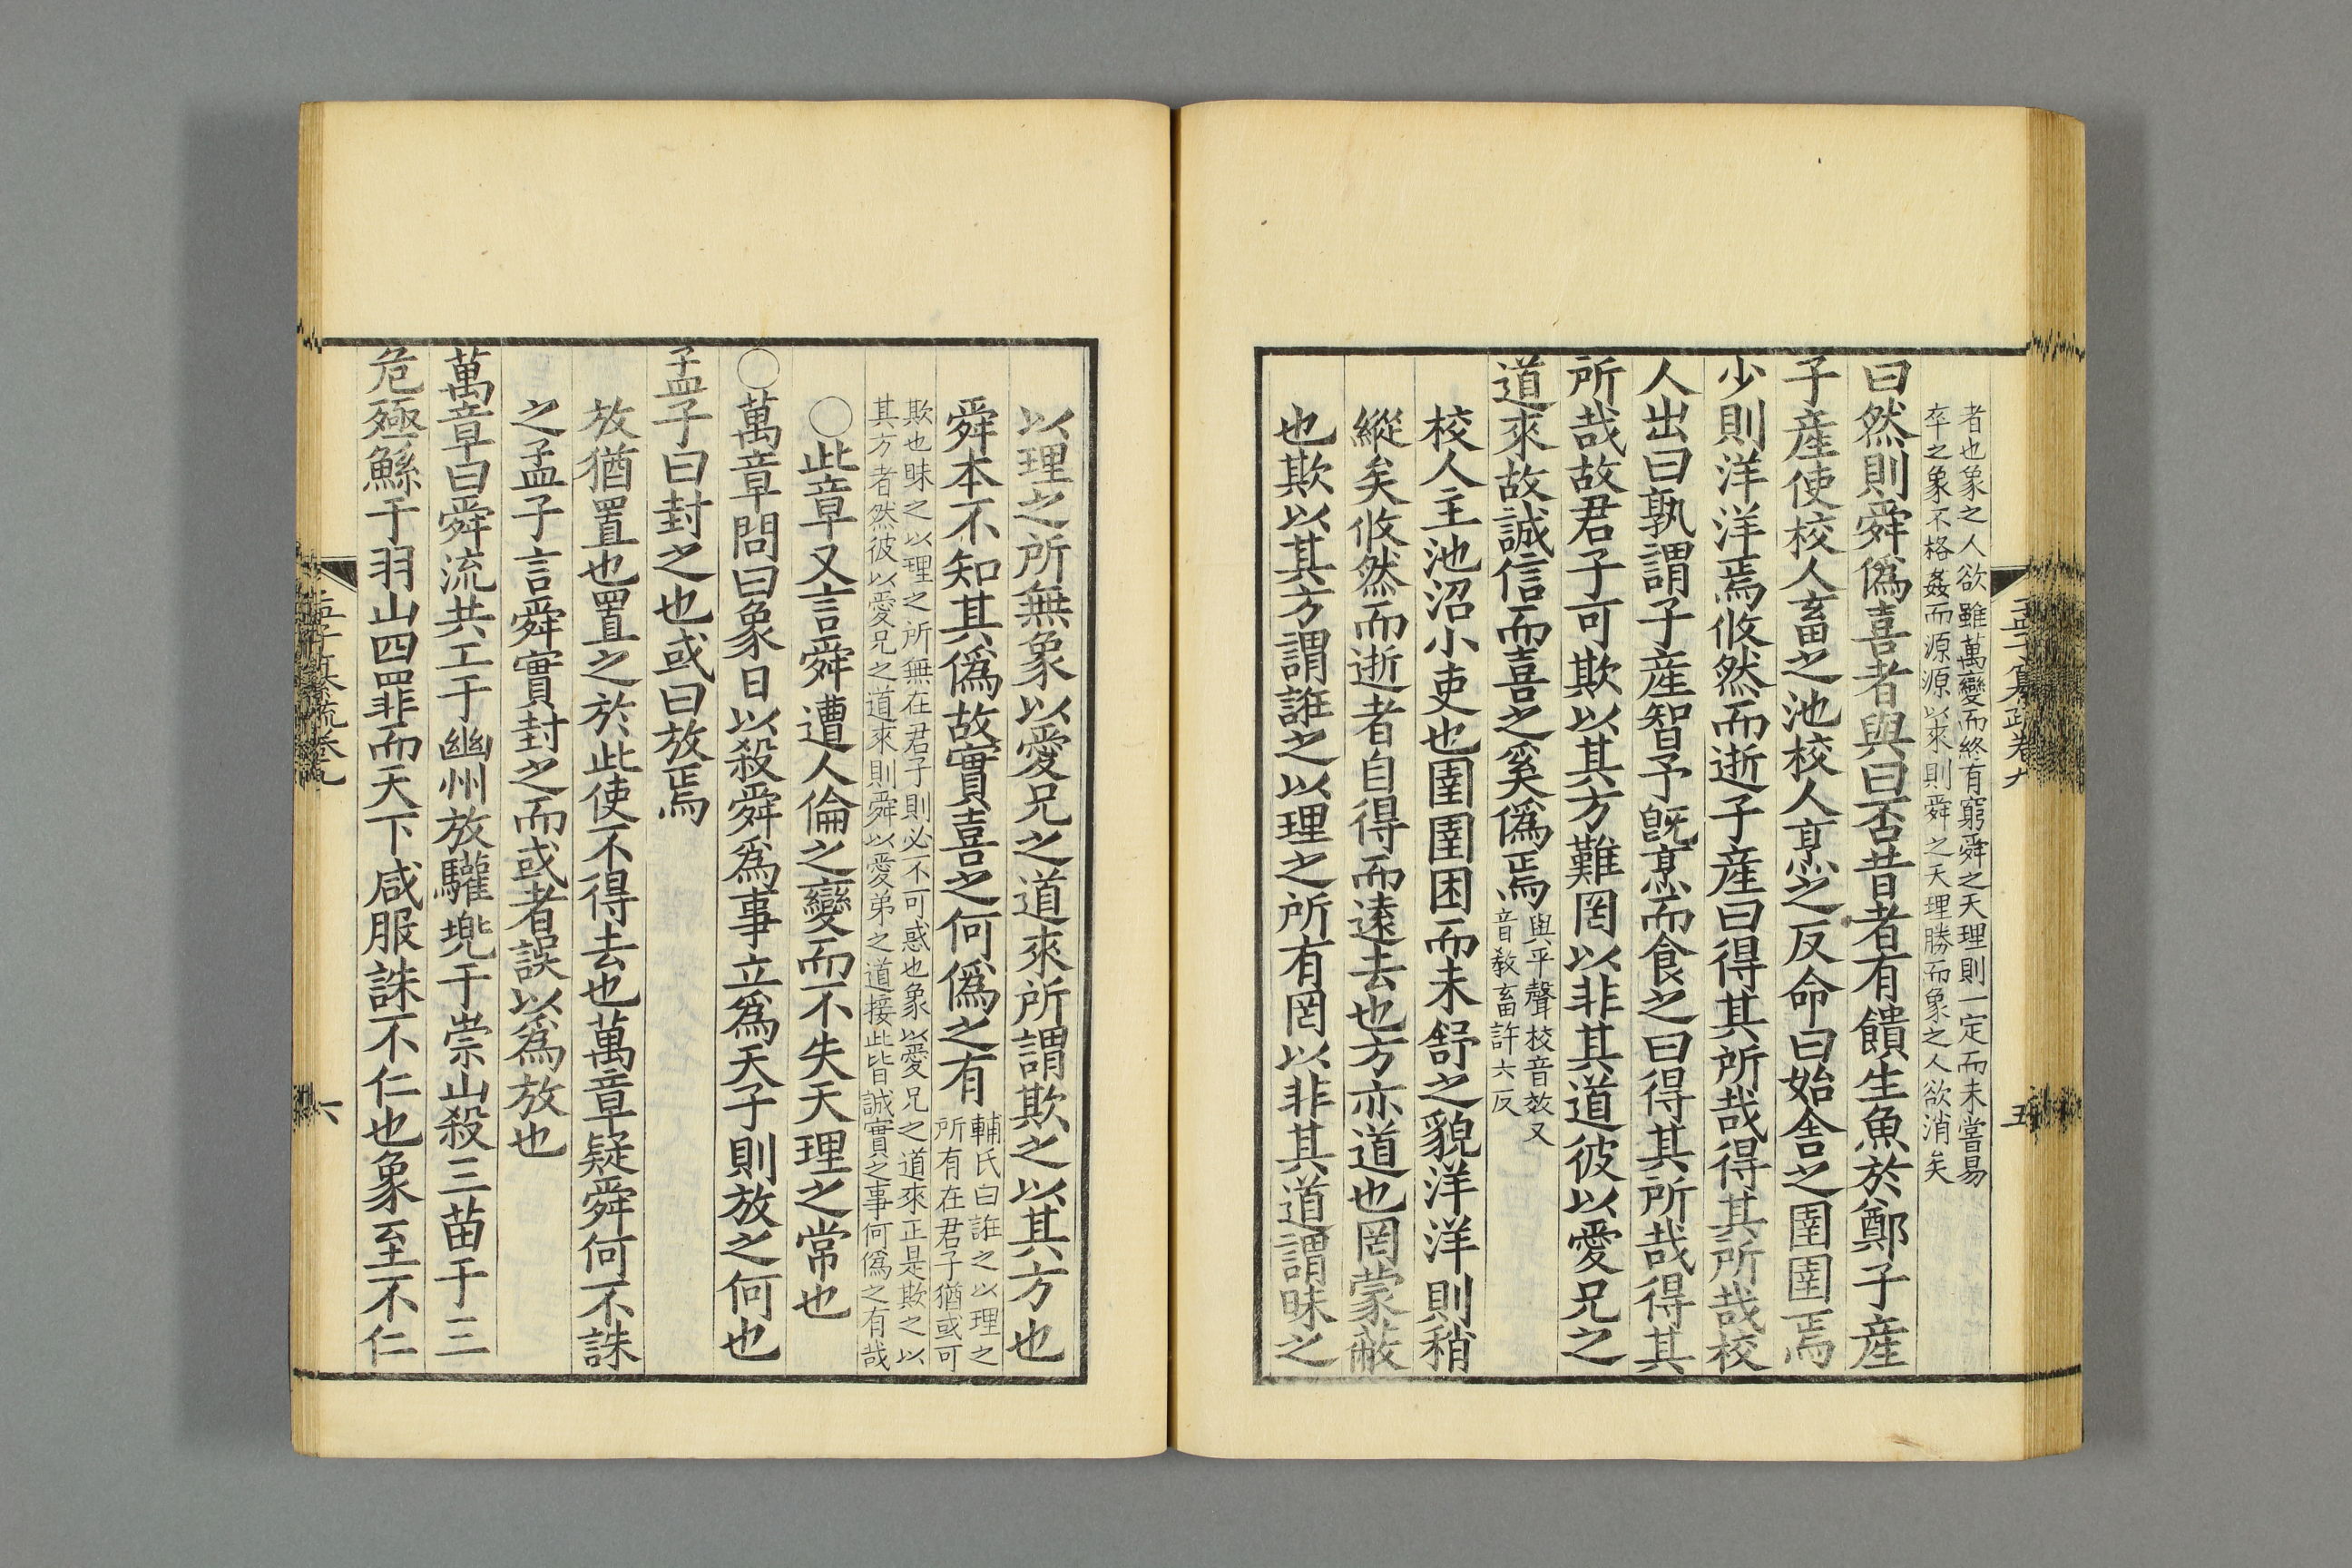 者也象之人欲雖萬變而終有窮舜之天理則一定而未嘗易
卒之象不格姦而源源以來則舜之天理勝而象之人欲消矣
曰然則舜偽喜者與曰否昔者有饋生魚於鄭子產
子產使校人畜之池校人烹之反命曰始舍之圉圉焉
少則洋洋焉攸然而逝子產曰得其所哉得其所哉校
人出曰孰謂子產智予既烹而食之曰得其所哉得其
所哉故君子可欺以其方難罔以非其道彼以愛兄之
道來故誠信而喜之奚偽焉
與平聲校音效又
音教畜許六反
校人主池沼小吏也圉圉困而未舒之貌洋洋則稍
縱矣攸然而逝者自得而遠去也方亦道也罔蒙蔽
也欺以其方謂誑之以理之所有罔以非其道謂昧之
以理之所無象以愛兄之道來所謂欺之以其方也
舜本不知其偽故實喜之何偽之有
輔氏曰誑之以理之
所有在君子猶或可
欺也昧之以理之所無在君子則必不可惑也象以愛兄之道來正是欺之以
其方者然彼以愛兄之道來則舜以愛弟之道接此皆誠實之事何偽之有哉
○此章又言舜遭人倫之變而不失天理之常也
○萬章問曰象日以殺舜為事立為天子則放之何也
孟子曰封之也或曰放焉
放猶置也置之於此使不得去也萬章疑舜何不誅
之孟子言舜實封之而或者誤以為放也
萬章曰舜流共工于幽州放驩兜于崇山殺三苗于三
危殛鯀于羽山四罪而天下咸服誅不仁也象至不仁
五
六